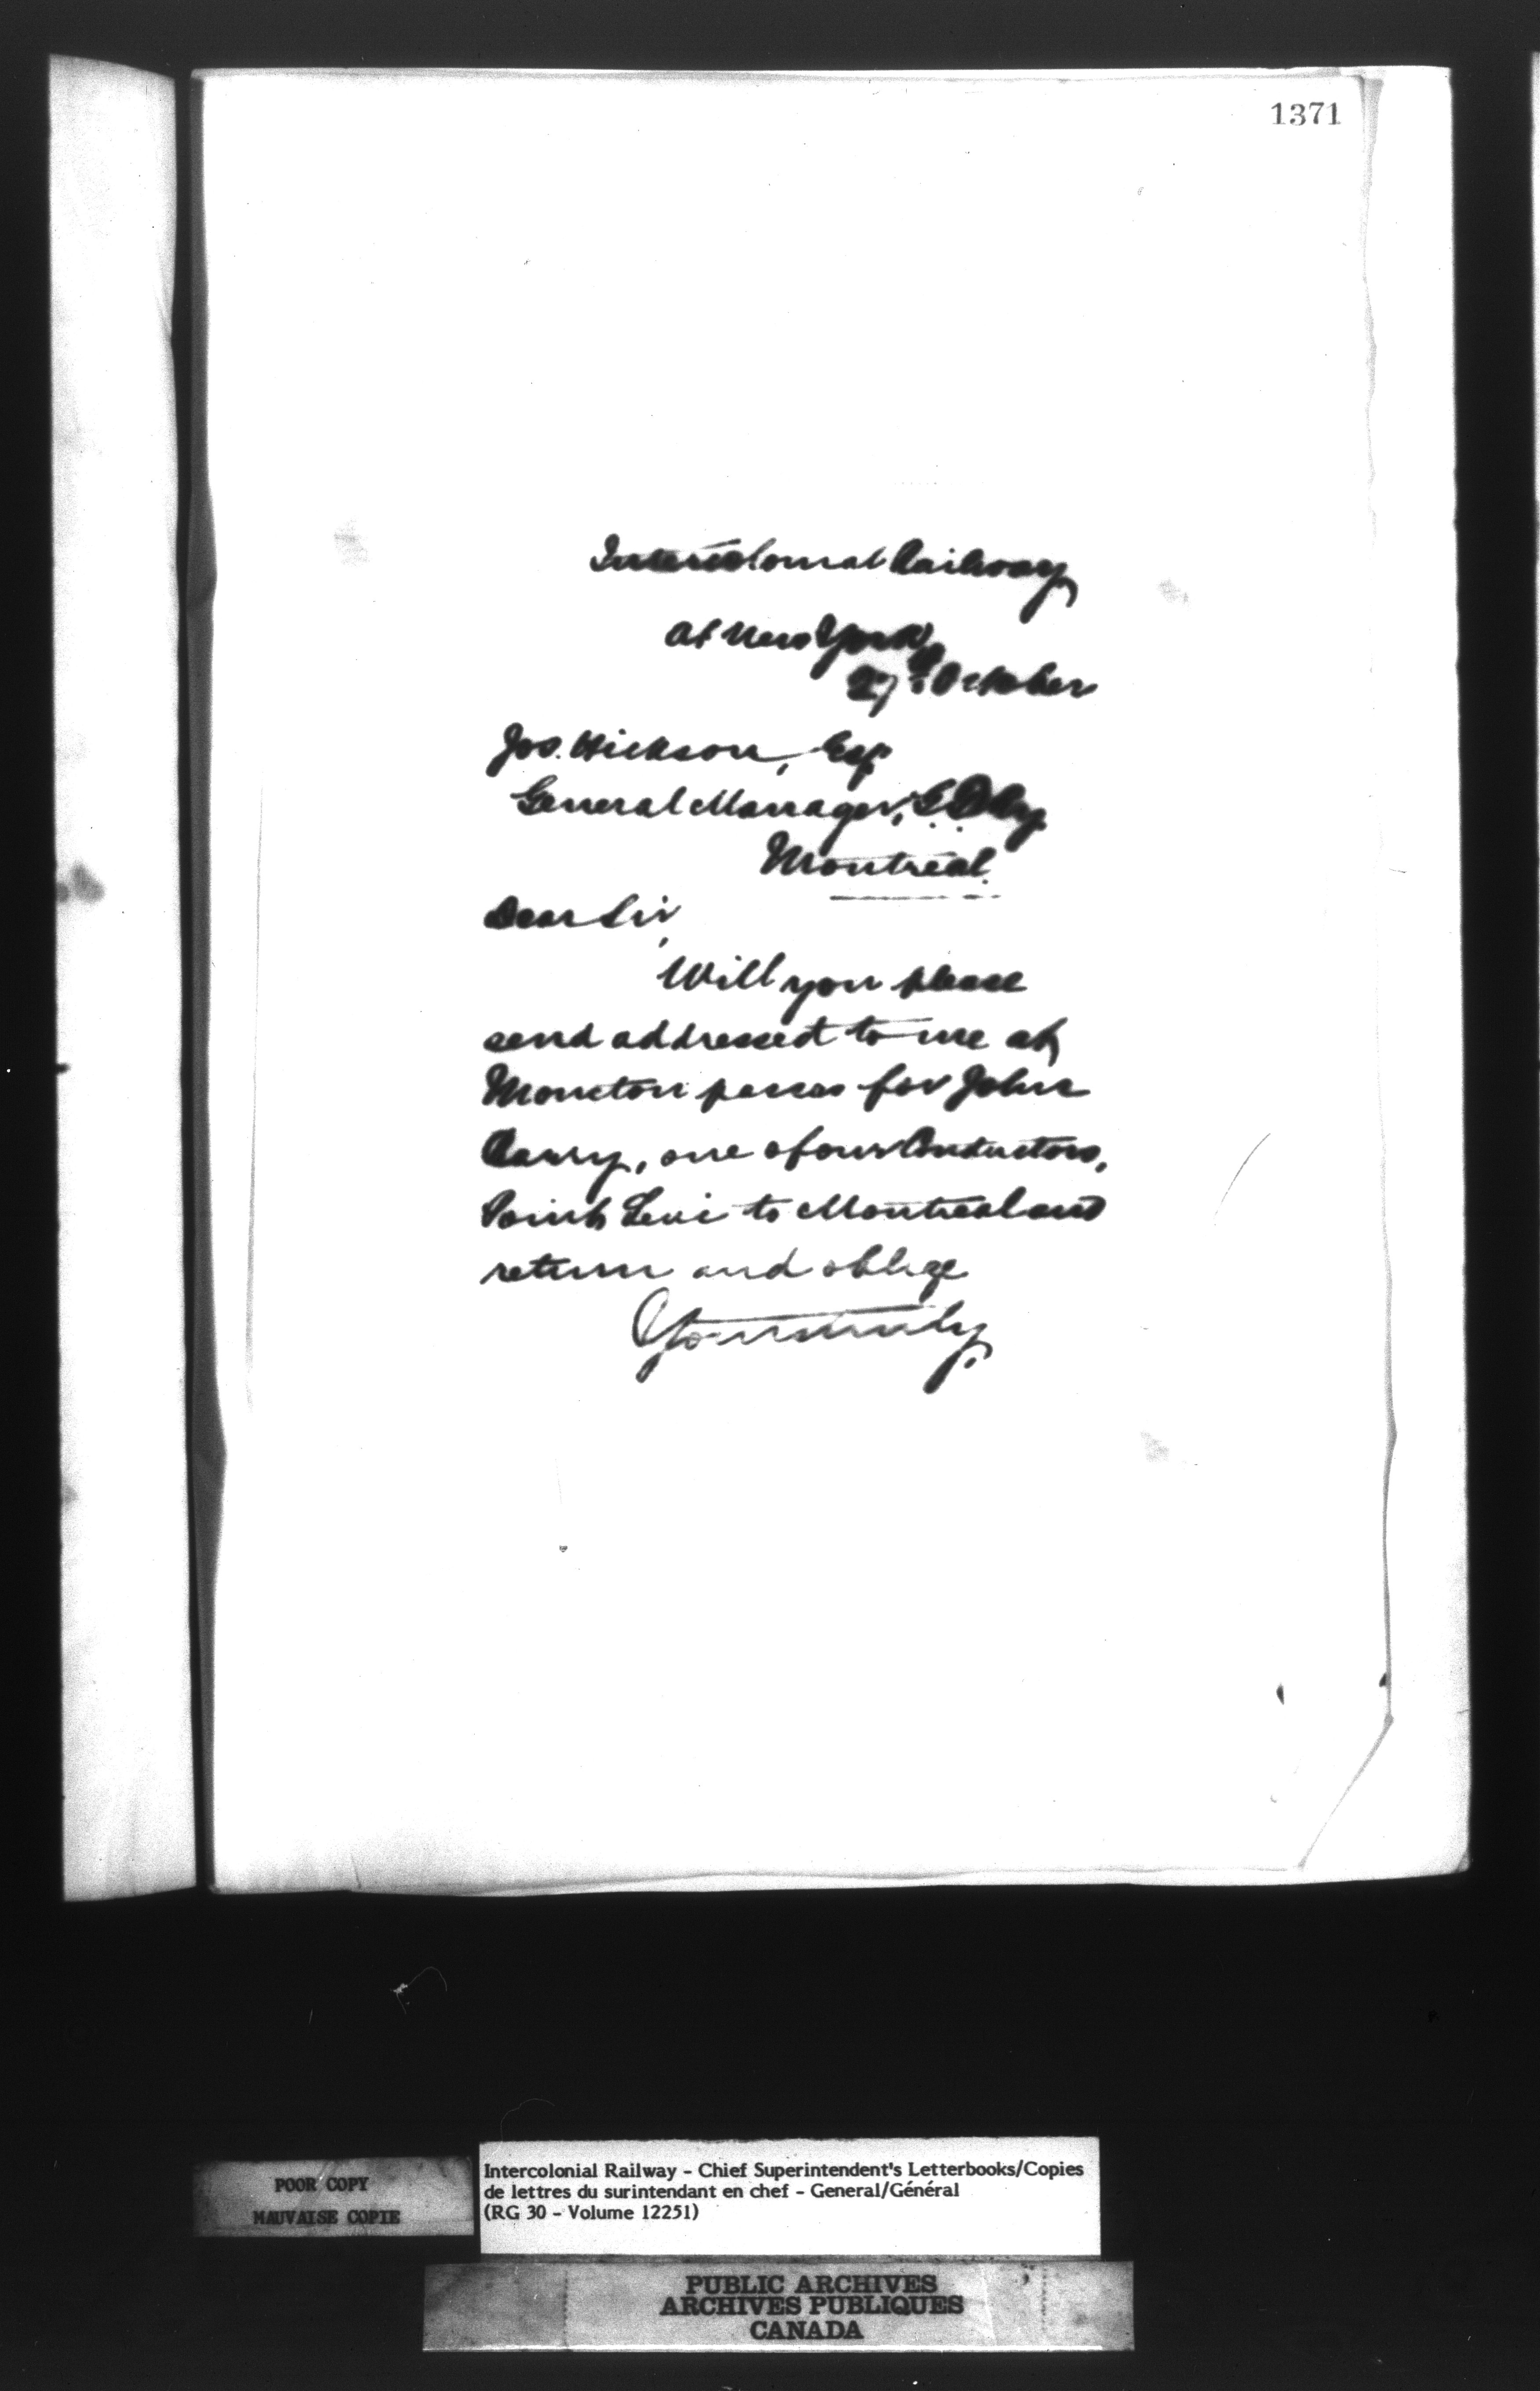 1371
Intercolonial Railway
At New York
27th October
Jos. Hickson, Esq
General Manager,
Montreal.
Dear Sir,
Will you please
send addressed to me at
Moncton passes for John
one of our Conductors,
Point Levi to Montreal and
return and oblige
Yours truly,
POOR COPY
MAUVAISE COPIE
Intercolonial Railway - Chief Superintendent's Letterbooks/Copies
de lettres du surintendant en chef - General/Général
(RG 30 - Volume 12251)
PUBLIC ARCHIVES
ARCHIVES PUBLIQUES
CANADA